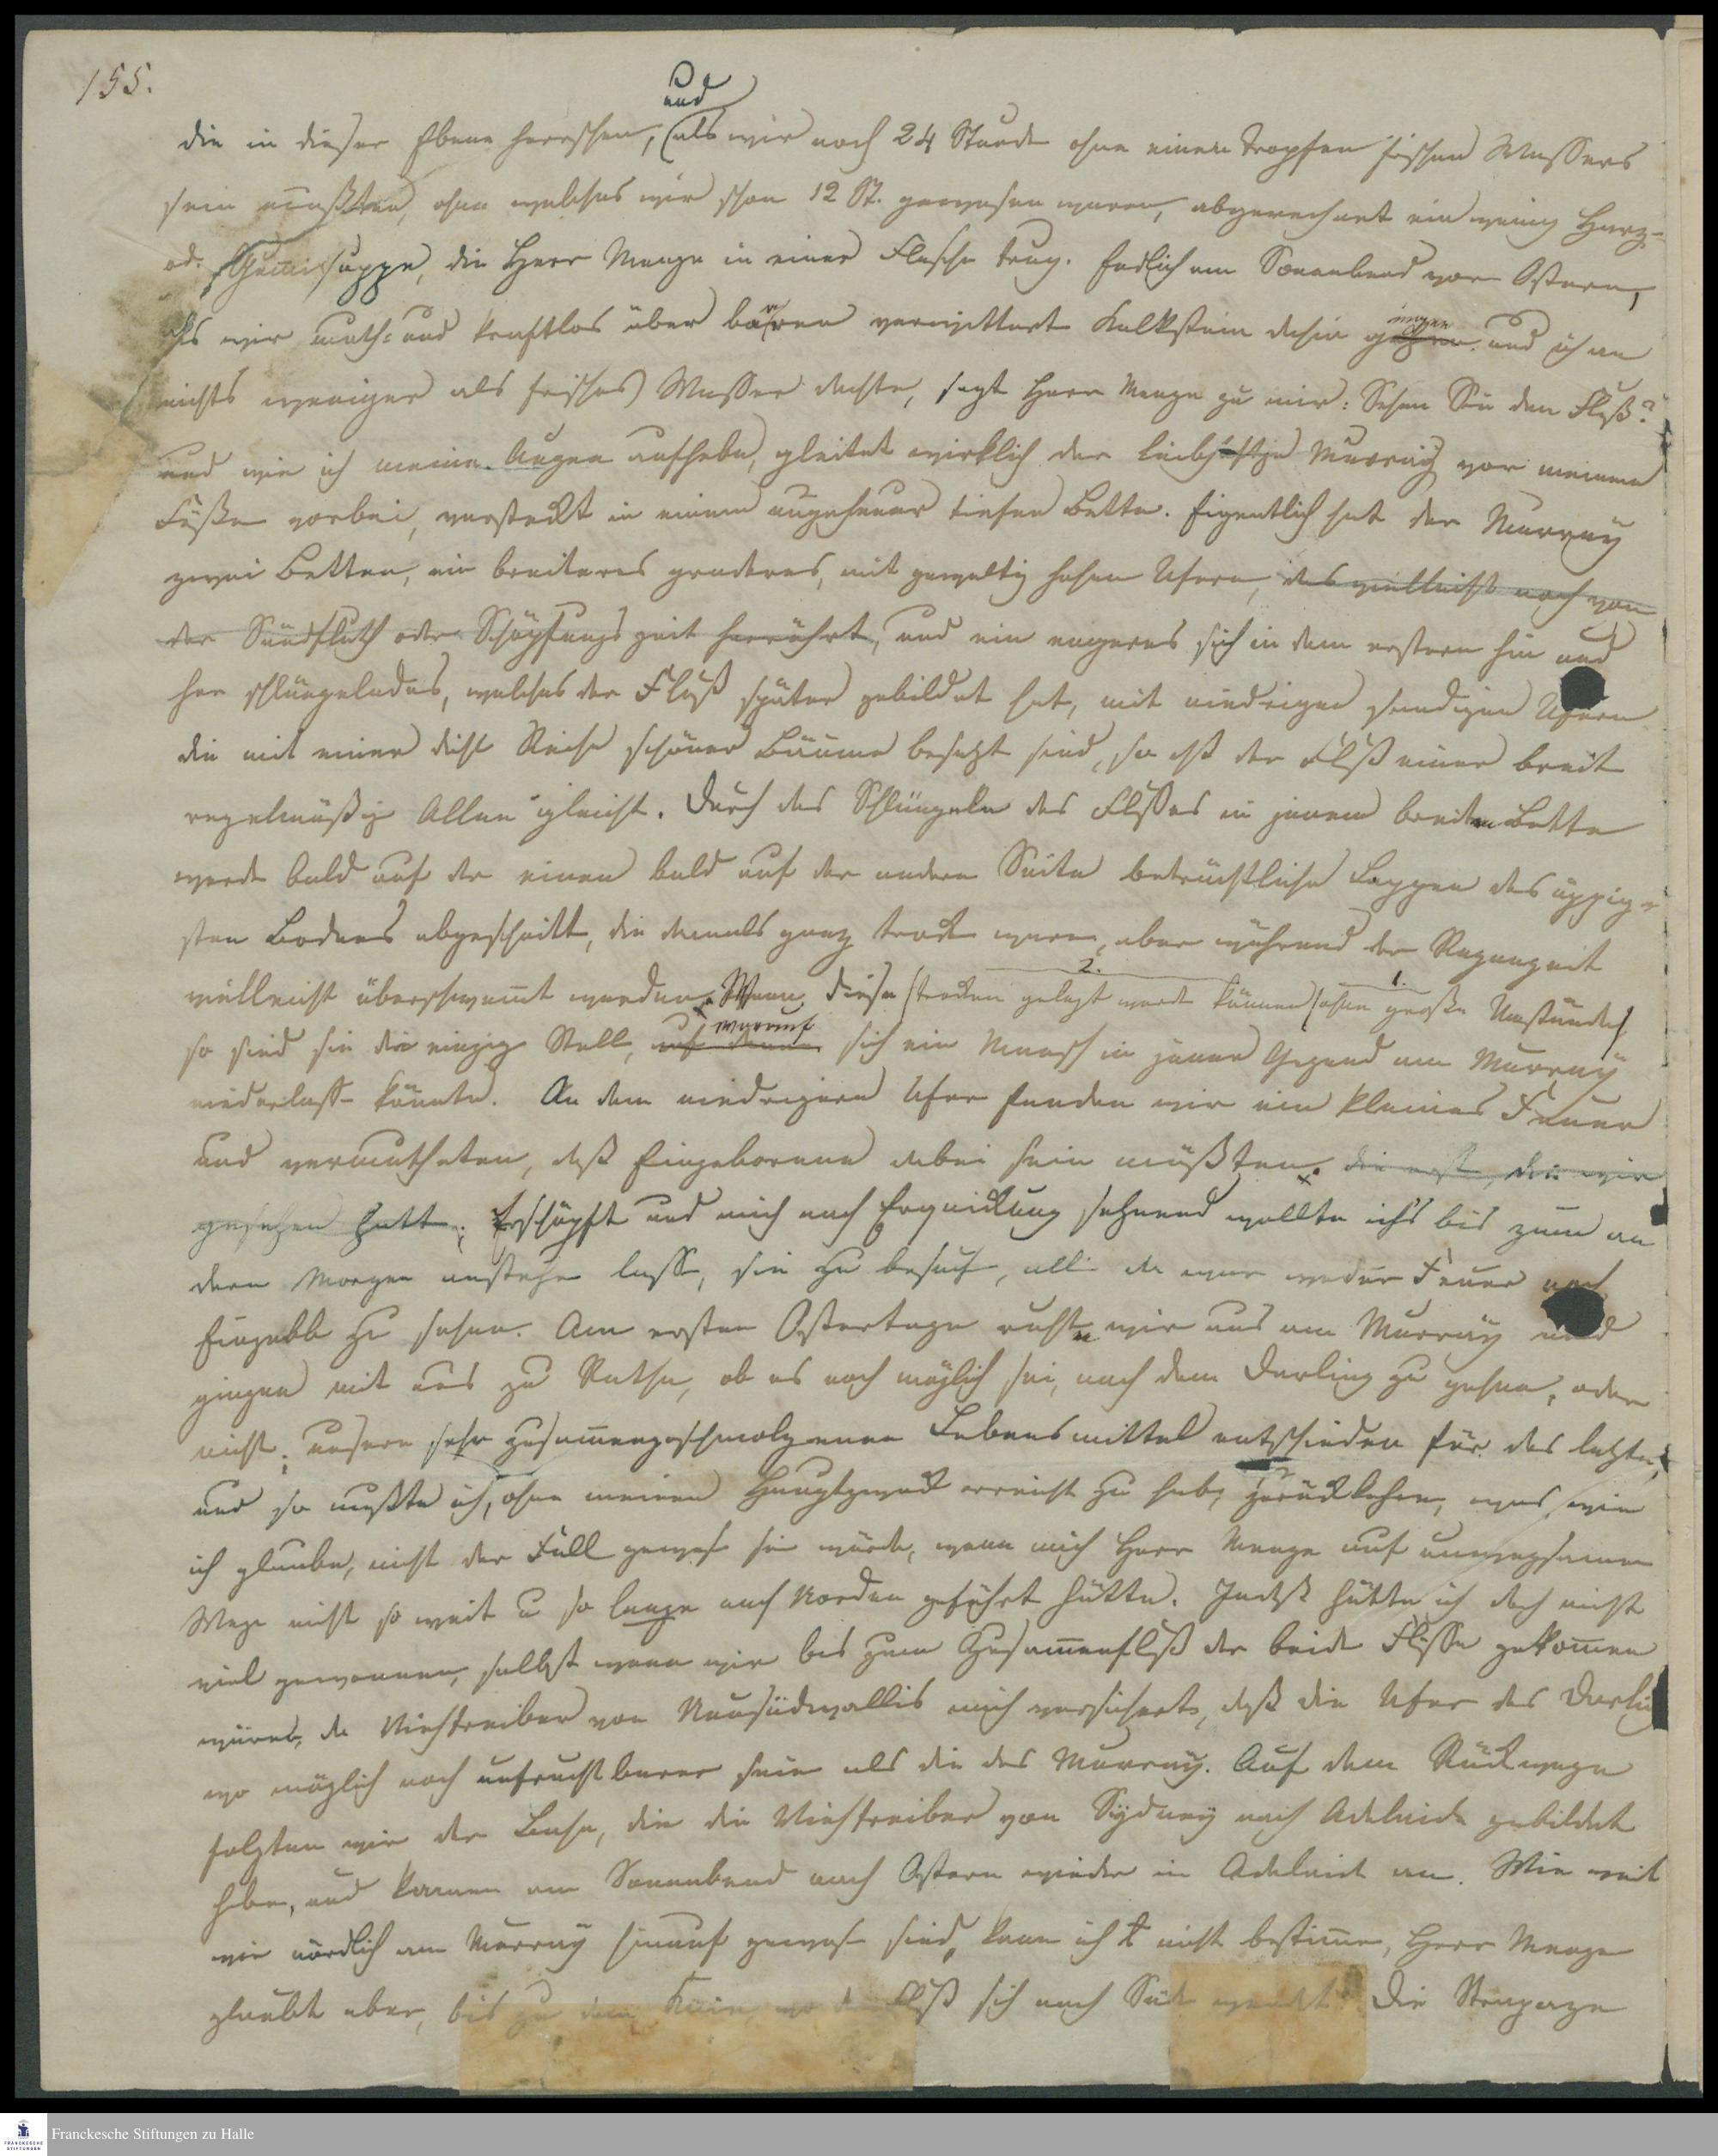 155.
und
die in dieser Ebene herrschen, (als wir noch 24 Stunde ohne einen Tropfen frischen Wassers
sein mußten, ohne welches wir schon 12 St. gewesen waren, abgerechnet ein wenig Harz-
od. Gum̅isuppe, die Herr Menge in einer Flasche trug. Endlich am Sonnabend vor Ostern,
als wir muth- und kraftlos über verwittert Kalkstein dahin gingen und ich an
nichts weniger als frisches Wasser dachte, sagt Herr Menge zu mir: Sehen Sie den Fluß?
und wie ich meine Augen aufhebe, gleitet wirklich der leibhaftge Murray vor meinen
Füßen vorbei, versteckt in einem ungeheuer tiefen Bette. Eigentlich hat der Murray
zwei Betten, ein breiteres graderes, mit gewaltig hohen Ufern, das vielleicht noch von
der Sündfluth oder Schöpfungszeit herrührt, und ein engeres sich in dem erstern hin und
her schlängelndes, welches der Fluß später gebildet hat, mit niedrigen sandigen Ufern
die mit einer dicht Reihe schöner Bäume besetzt sind, so daß der Fluß einer breit
regelmäßig Allee gleicht. Durch das Schlängeln des Flußes in jenem breiten Bette
werde bald auf der einen bald auf der andern Seite beträchtliche Lappen des üppig-
sten Bodens abgeschnitt, die damals ganz trock waren, aber während der Regenzeit
vielleicht überschwem̅t werden. Wenn diese (trocken gelegt werde können) (ohne große Umstände)
2. 1.
so sind sie die einzige Stell, auf denen worauf sich ein Mensch in jener Gegend am Murray
niederlass könnte. An dem niedrigern Ufer fanden wir ein kleines Feuer
und vermutheten, daß Eingeborene dabei sein müßten. die erst, die wir
gesehen hatt. Erschöpft und mich nach Erquickung sehnend wollte ich's bis zum an
dern Morgen anstehe lasse, sie zu besuch, all da war weder Feuer noch
Eingebb zu sehen. Am ersten Ostertage ruhten wir uns am Murray und
gingen mit uns zu Rathe, ob es noch möglich sei, nach dem Darling zu gehen, oder
nicht; unsere sehr zusam̅engeschmolzenen Lebensmittel entschieden für das letzte,
und so mußte ich, ohne meinen Hauptzweck erreicht zu hab, zurückkehre, was, wie
ich glaube, nicht der Fall gewes sei würde, wenn mich Herr Menge auf unwegsamem
Wege nicht so weit u so lange nach Norden geführt hätte. Indeß hätte ich doch nicht
viel gewonnen, selbst wenn wir bis zum Zusam̅enfluß der beide Flüsse gekom̅en
wären, da Viehtreiber von Neusüdwallis mich versichert, daß die Ufer des Darling
wo möglich noch unfruchtbarer seie als die des Murray. Auf dem Rückwege
folgten wir der Bahn, die die Viehtreiber von Sydney nach Adelaide gebildet
habe, und kamen am Sonnabend nach Ostern wieder in Adelaide an. Wie weit
wir nördlich am Murray hinauf gewes sind, kann ich nicht bestim̅e, Herr Menge
glaubt aber, bis zu dem Knie, wo der Fluß sich nach Süd wendet. Die Strapaze
Franckesche Stiftungen zu Halle
FRANCKESCHE
STIFTUNGEN